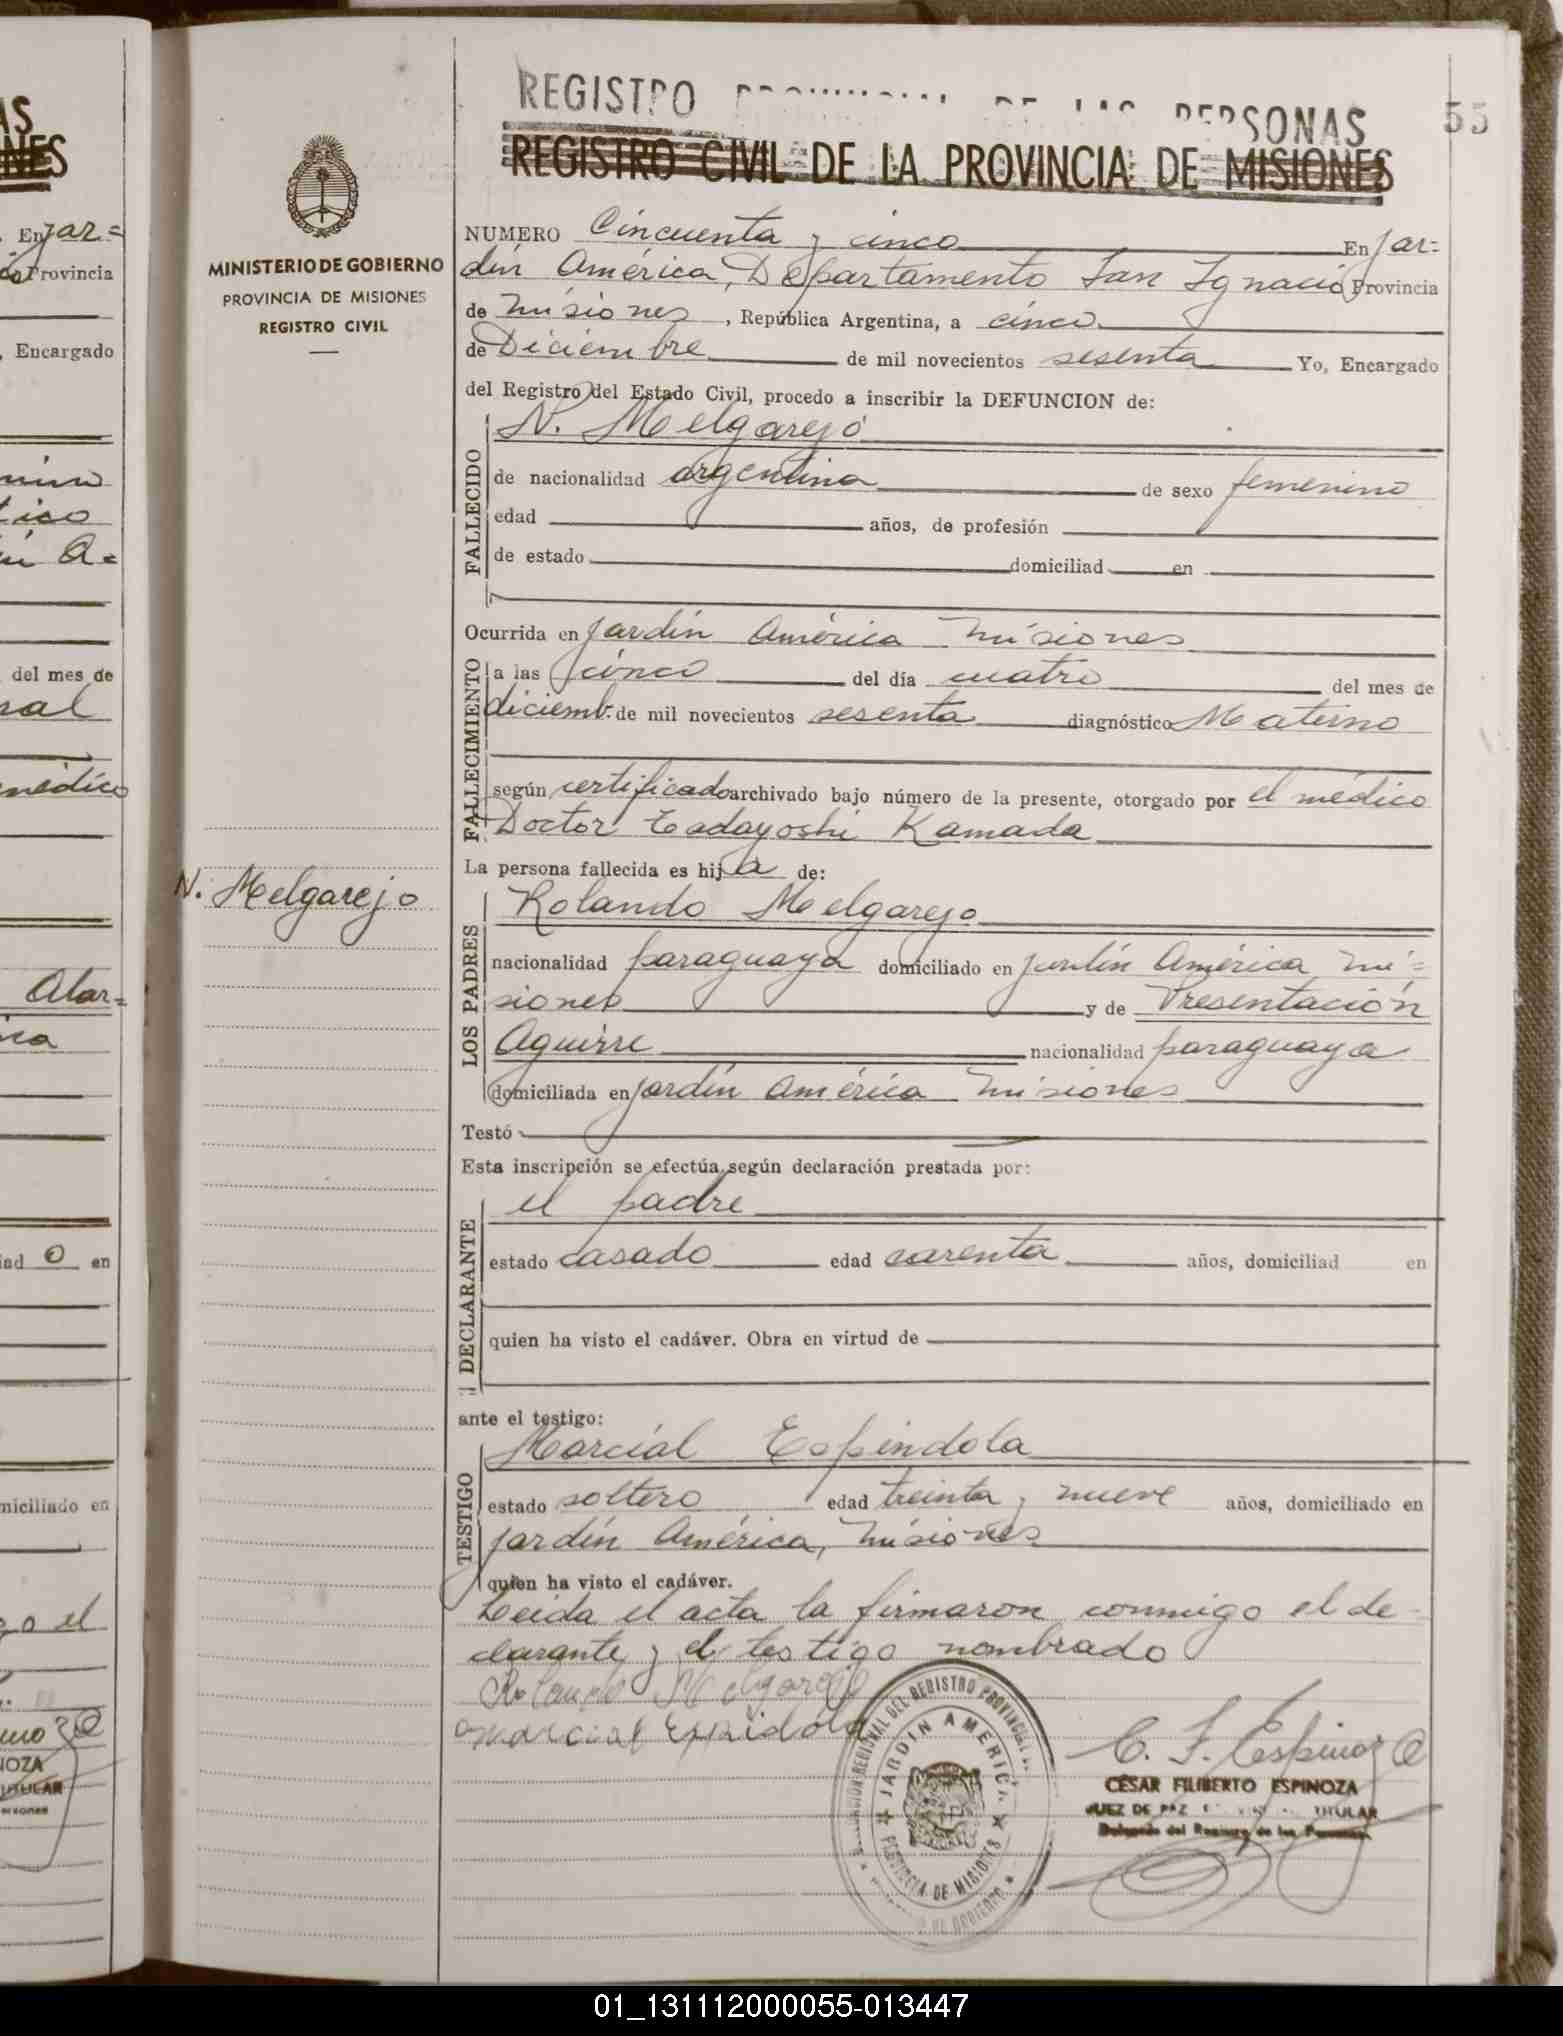 REGISTRO DE LAS PERSONAS
55
REGISTRO CIVIL DE LA PROVINCIA DE MISIONES
MINISTERIO DE GOBIERNO
PROVINCIA DE MISIONES
REGISTRO CIVIL
N. Melgarejo
NUMERO Cincuenta y cinco En Jar=
dín América, Departamento San Ignacio Provincia
de Misiones, República Argentina, a cinco
de Diciembre de mil novecientos sesenta Yo, Encargado
del Registro del Estado Civil, procedo a inscribir la DEFUNCION de:
FALLECIDO
N. Melgarejo
de nacionalidad argentina de sexo femenino
edad años, de profesión
de estado domiciliad en
Ocurrida en Jardín América Misiones
FALLECIMIENTO
a las cinco del día cuatro del mes de
diciemb. de mil novecientos sesenta diagnóstico Materno
según certificado archivado bajo número de la presente, otorgado por el médico
Doctor Tadayoshi Kamada
La persona fallecida es hija de:
LOS PADRES
Rolando Melgarejo
nacionalidad paraguaya domiciliado en Jardín América Mi=
siones y de Presentación
Aguirre nacionalidad paraguaya
domiciliada en Jardín América Misiones
Testó
Esta inscripción se efectúa según declaración prestada por:
DECLARANTE
el padre
estado casado edad carenta años, domiciliad en
quien ha visto el cadáver. Obra en virtud de
ante el testigo:
TESTIGO
Marcial Espindola
estado soltero edad treinta y nueve años, domiciliado en
Jardín América, Misiones
quien ha visto el cadáver.
Leida el acta la firmaron conmigo el de-
clarante y el testigo nombrado
Rolando Melgarejo
marcial Espidola
JARDIN AMERICA
PROVINCIA DE MISIONES
C. F. Espinoza
CÉSAR FILIBERTO ESPINOZA
JUEZ DE PAZ TITULAR
Delegado del Registro de las Personas
01_131112000055-013447